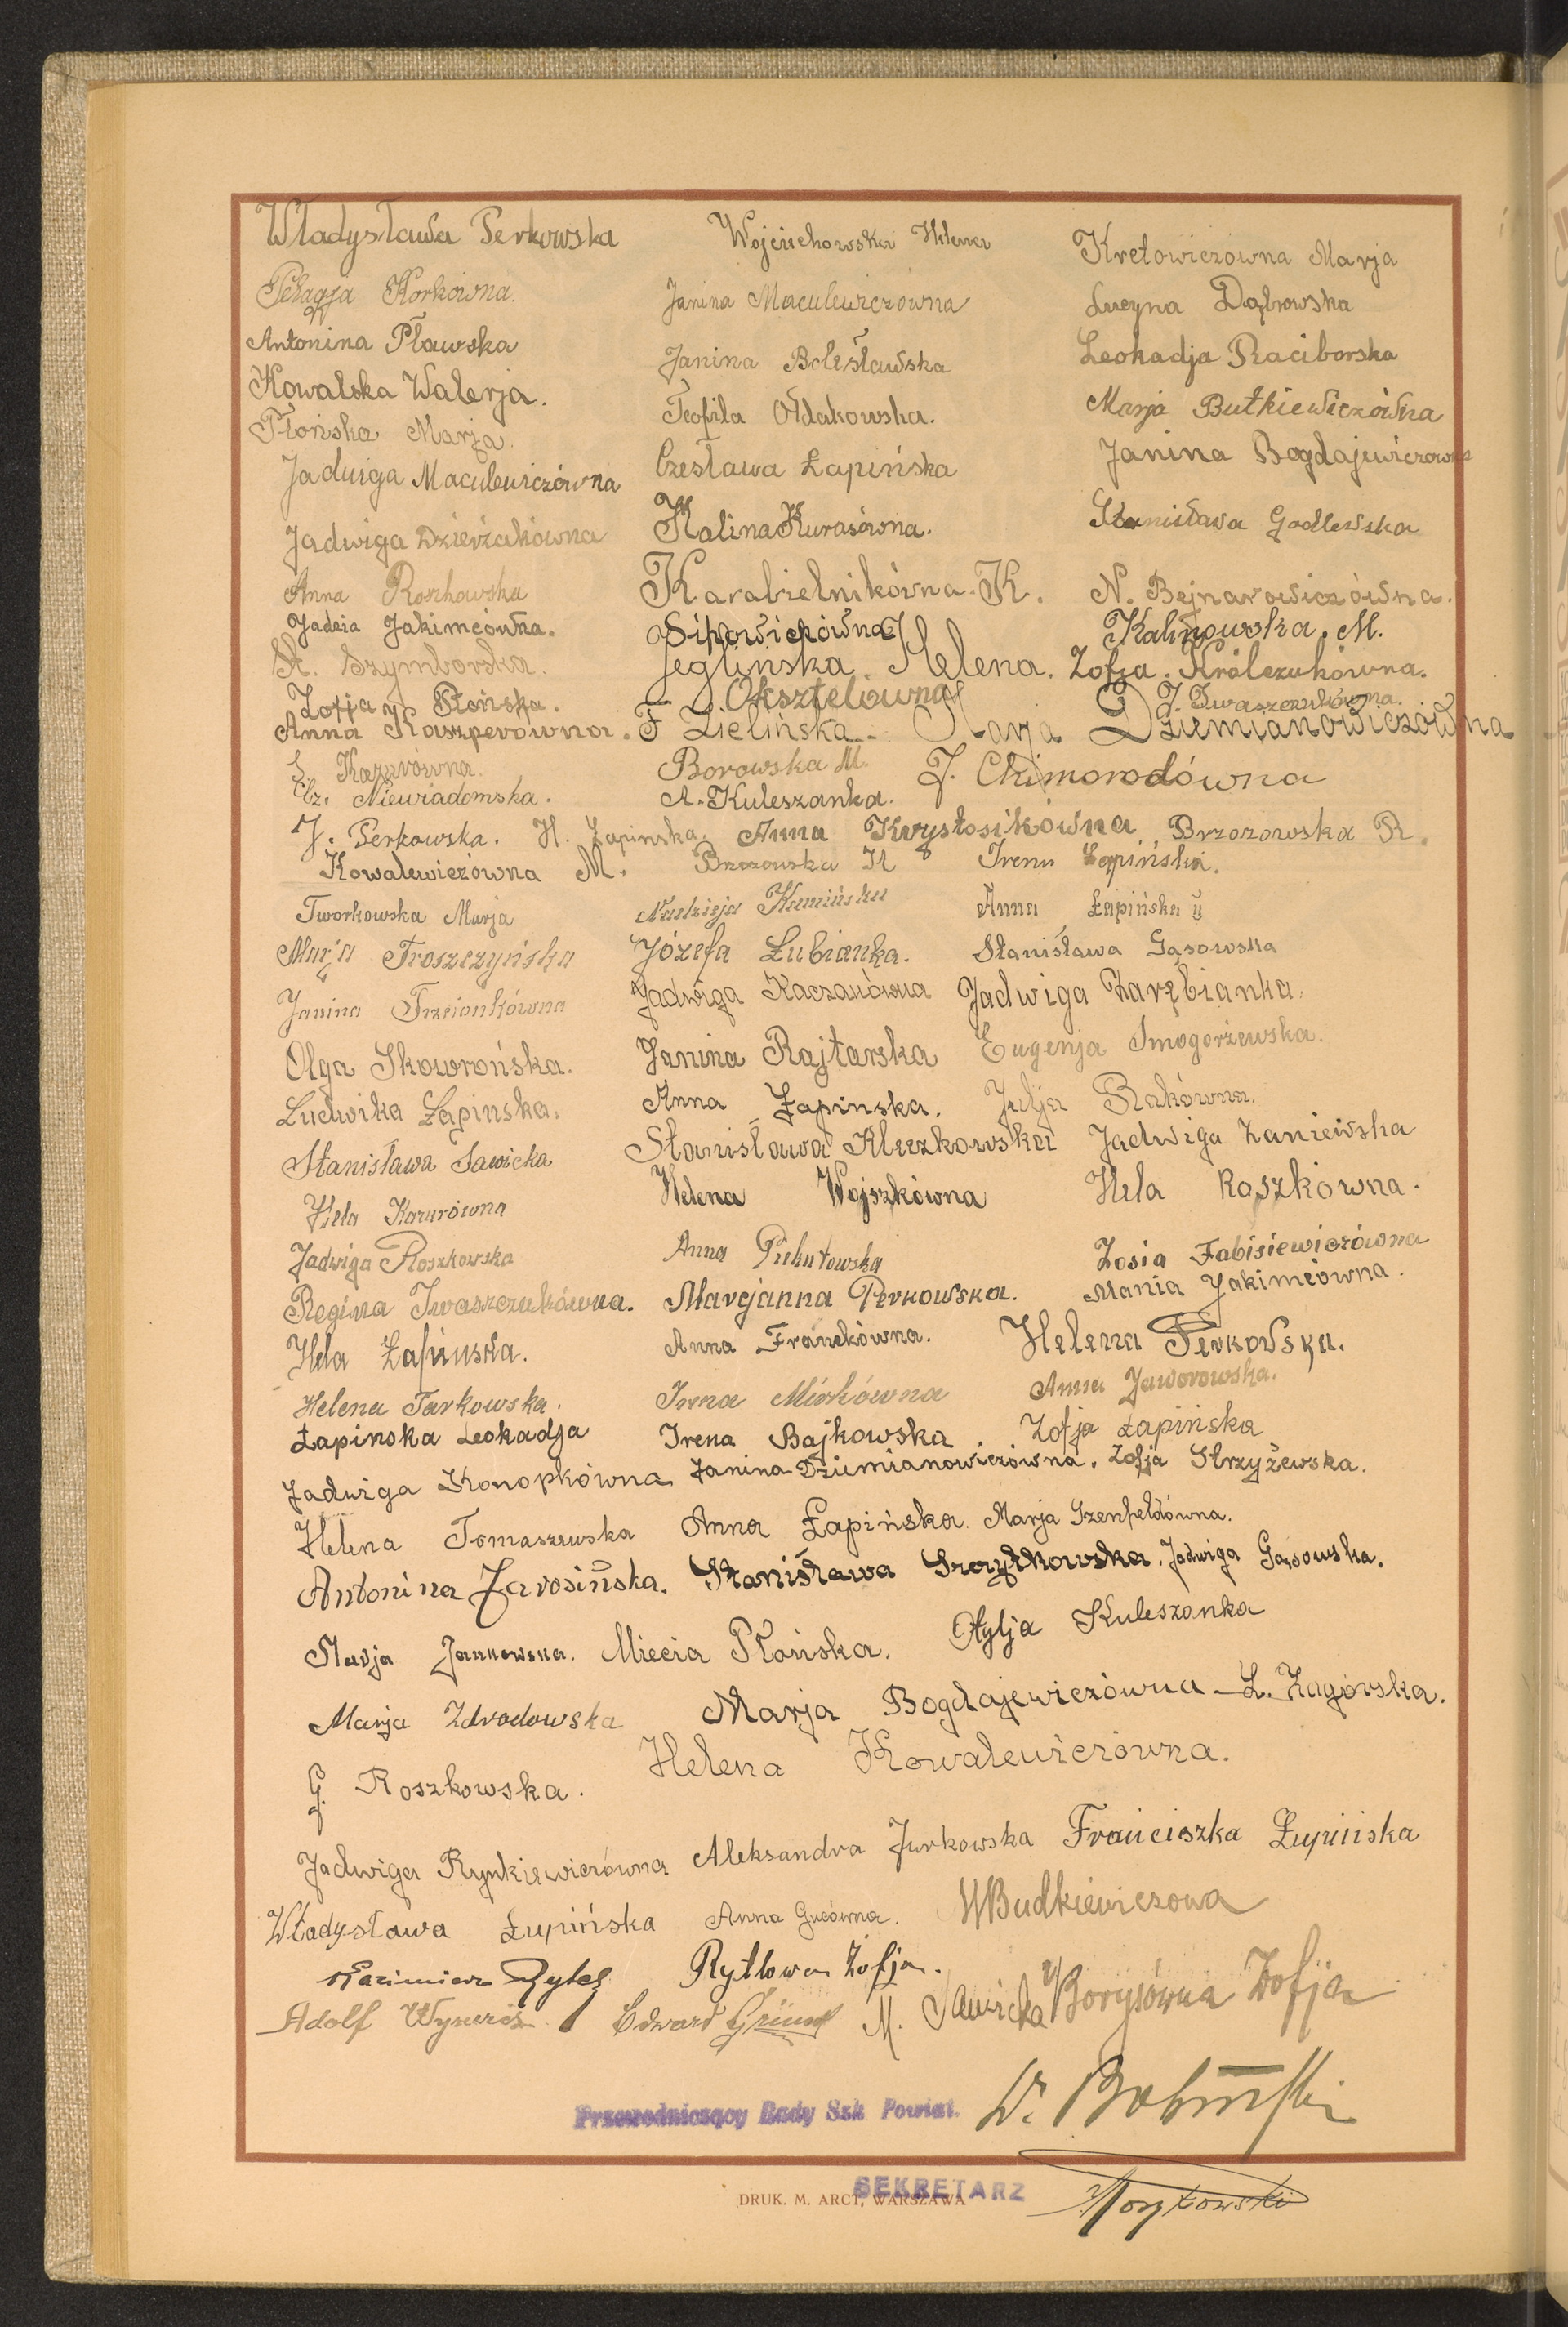 Władysława Perkowska Wojciechowska Helena Kretowiczówna Marja
Pelagja Korkówna. Janina Maculewiczówna Lucyna Dąbrowska
Antonina Pławska Janina Bolesławska Leokadja Raciborska
Kowalska Walerja. Teofila Ołdakowska. Marja Butkiewiczówna
Płońska Marja. Czesława Łapińska Janina Bogdajewiczówna
Jadwiga Maculewiczówna Kalina Kurasówna. Stanisława Godlewska
Jadwiga Dzierżakówna Karabielnikówna. K. N. Bejnarowiczówna.
Anna Roszkowska Sipowiczówna J Kalinowska. M.
Jadzia Jakimcówna. Jeglinska Helena. Zofja. Królczukówna.
St. Szymborska. Oksztelówna J. Iwaszczukówna.
Zofja Płońska. F Zielińska. Marja Dziemianowiczówna
Anna Kaszperowna. Borowska M. J. Chimorodówna
Kazurówna. A. Kuleszanka.
Cz. Niewiadomska.
J. Perkowska. H. Łapinska. Anna Krystosikówna Brzozowska R.
Kowalewiczówna M. Brzozowska H Irena Łapińska.
Tworkowska Marja Nadzieja Kamińska Anna Łapińska II
Marja Troszczyńska Józefa Łubianka. Stanisława Gąsowska
Janina Trzcionkówna Jadwiga Kaczanówna Jadwiga Zarębianka.
Olga Skowrońska. Janina Rajtarska Eugenja Smogorzewska.
Ludwika Łapinska. Anna Łapinska. Julja Rakówna.
Stanisława Sawicka Stanisława Kleczkowska Jadwiga Zaniewska
Hela Kazurówna Helena Wojszkówna Hela Roszkówna.
Jadwiga Roszkowska Anna Piekutowska Zosia Fabisiewiczówna
Regina Iwaszczukówna. Marcjanna Perkowska. Mania Jakimcówna.
Hela Łapinska. Anna Franckówna. Helena Perkowska.
Helena Tarkowska. Irena Mińkówna Anna Jaworowska.
Łapinska Leokadja Irena Bajkowska Zofja Łapińska
Jadwiga Konopkówna Janina Dziemianowiczówna. Zofja Strzyżewska.
Helena Tomaszewska Anna Łapińska. Marja Szenfeldówna.
Antonina Jarosińska. Stanisława Szczytkowska. Jadwiga Gąsowska.
Marja Jankowska. Miecia Płońska. Otylja Kuleszanka
Marja Zdrodowska Marja Bogdajewiczówna Z. Zagórska.
G. Roszkowska. Helena Kowalewiczówna.
Jadwiga Rynkiewiczówna Aleksandra Jurkowska Franciszka Łupińska
Władysława Łupińska Anna Gucówna. WBudkiewiczowa
Kazimierz Rytel Rytlowa Zofja.
Adolf Edward M. Sawicka Borysówna Zofja
Przewodniczący Rady Szk Powiat. Dr.
SEKRETARZ
DRUK. M. ARCT, WARSZAWA